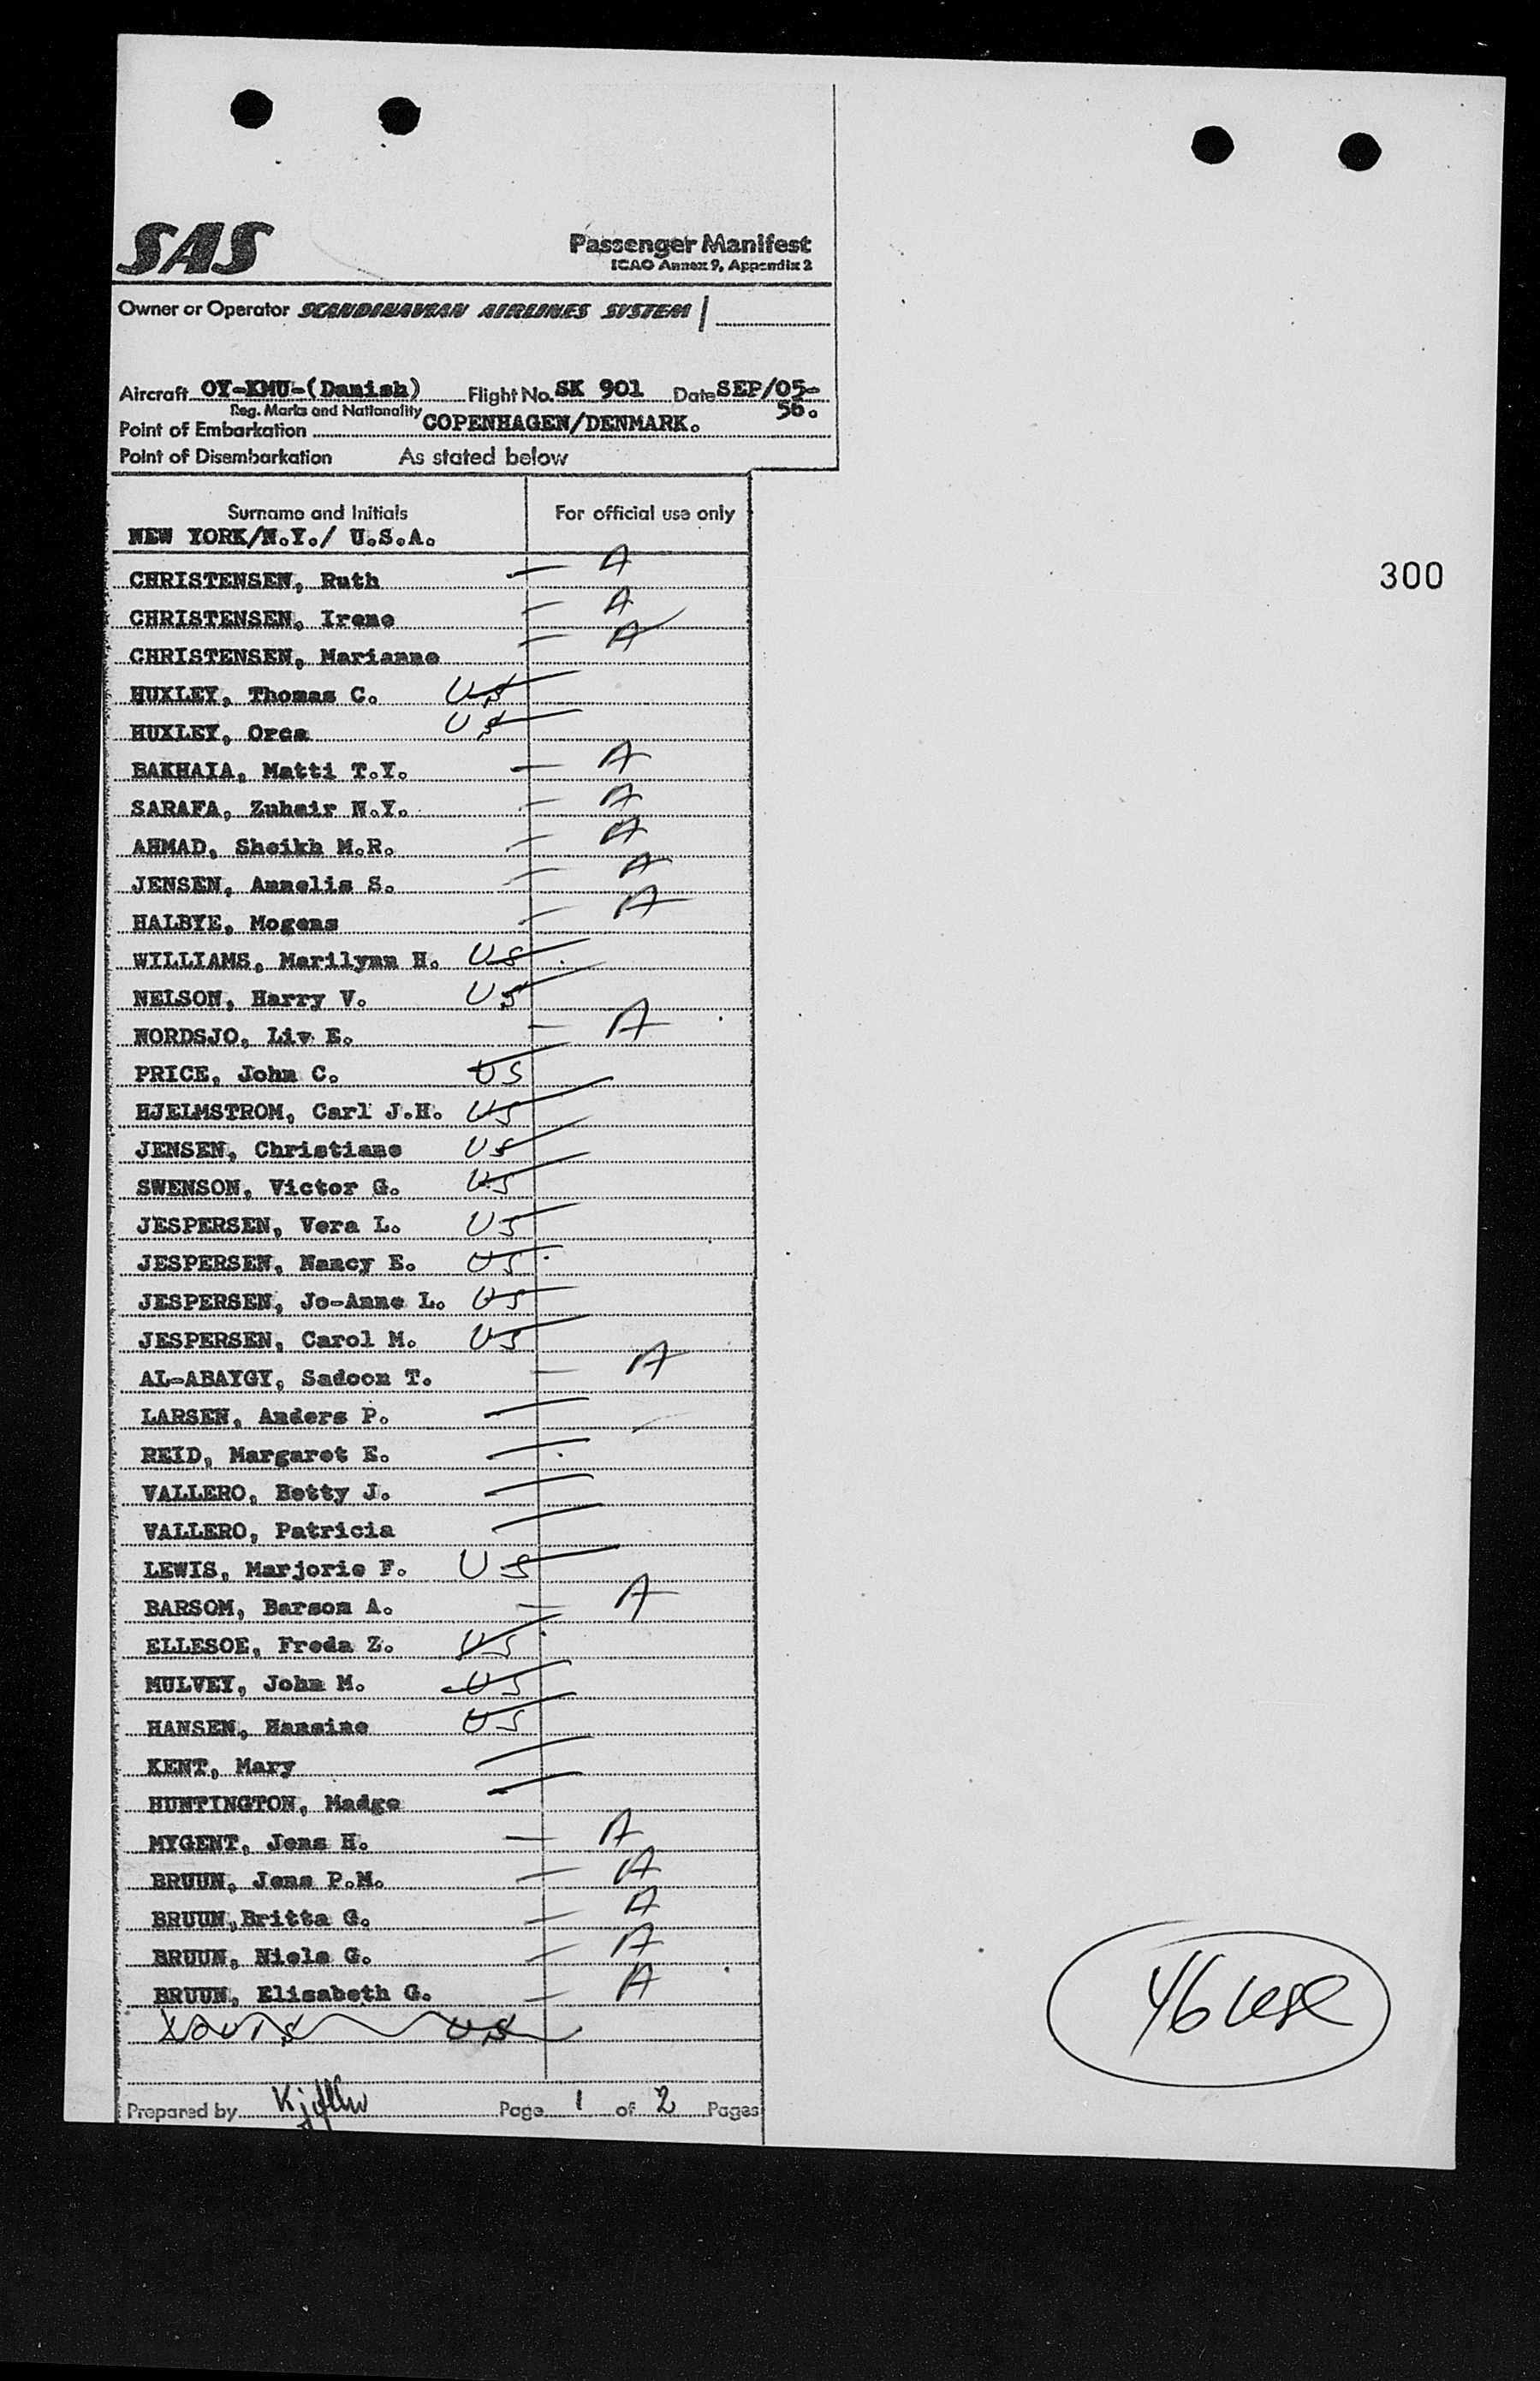 SAS
Passenger Manifest
ICAO Annex 9, Appendix 2
Owner or Operator SCANDINAVIAN AIRLINES SYSTEM
Aircraft OY-KMU-(Danish) Flight No. SK 901 Date SEP/05-
56.
Reg. Marks and Nationality
Point of Embarkation COPENHAGEN/DENMARK.
Point of Disembarkation As stated below
Surname and Initials For official use only
NEW YORK/N.Y./ U.S.A.
CHRISTENSEN, Ruth — A
300
CHRISTENSEN, Irene — A
CHRISTENSEN, Marianne — A
HUXLEY, Thomas C. US
HUXLEY, Orea US
BAKHAIA, Matti T.Y. — A
SARAFA, Zuhair N.Y. — A
AHMAD, Sheikh M.R. — A
JENSEN, Annelis S. — A
HALBYE, Mogens — A
WILLIAMS, Marilynn H. US
NELSON, Harry V. US
NORDSJO, Liv E. — A
PRICE, John C. US
HJELMSTROM, Carl J.H. US
JENSEN, Christiane US
SWENSON, Victor G. US
JESPERSEN, Vera L. US
JESPERSEN, Nancy E. US
JESPERSEN, Jo-Anne L. US
JESPERSEN, Carol M. US
AL-ABAYGY, Sadoon T. — A
LARSEN, Anders P.
REID, Margaret E.
VALLERO, Betty J.
VALLERO, Patricia
LEWIS, Marjorie F. US
BARSOM, Barsom A. — A
ELLESOE, Freda Z. US
MULVEY, John M. US
HANSEN, Hansine US
KENT, Mary
HUNTINGTON, Madge
MYGENT, Jens H. — A
BRUUN, Jens P.M. — A
BRUUN, Britta G. — A
BRUUN, Niels G. — A
BRUUN, Elisabeth G. — A
US
46 usc
Prepared by Page 1 of 2 Pages